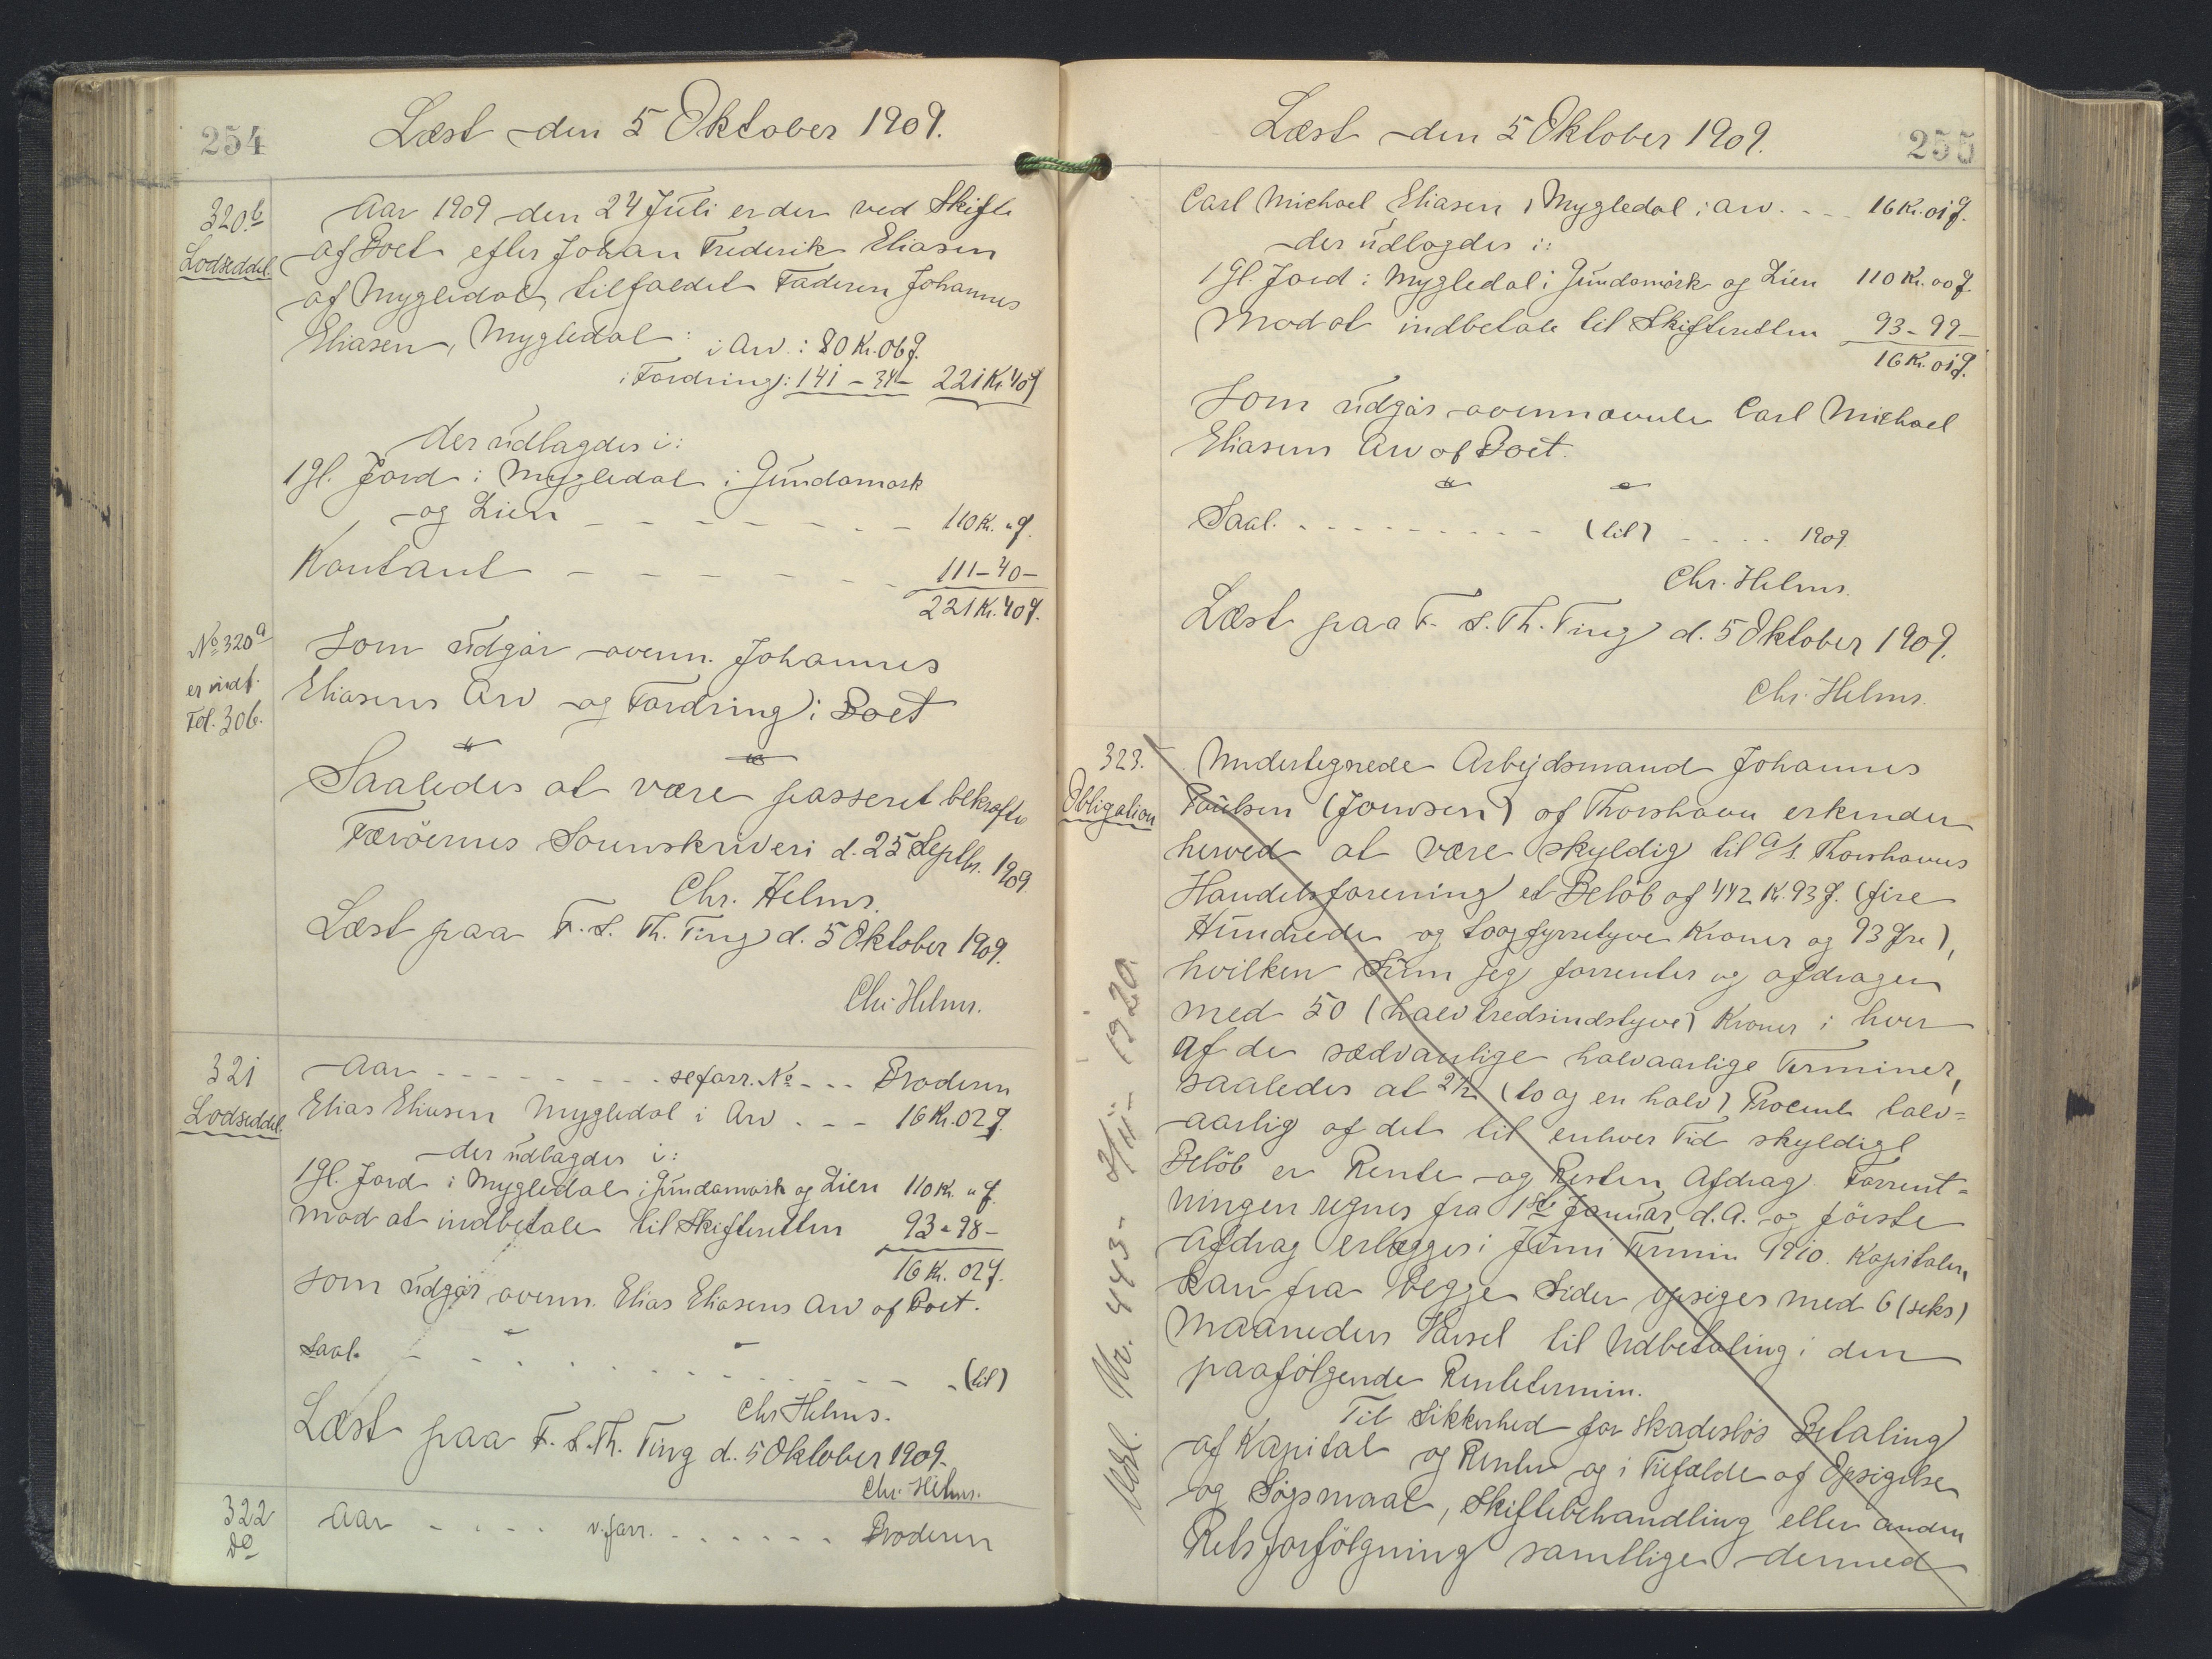 254
Læst den 5 Oktober 1909.
320.b
Lodseddel.
Aar 1909 den 24 Juli er der ved Skifte
af Boet efter Johan Frederik Eliasen
af Mygledal tilfaldet Faderen Johannes
Eliasen, Mygledal: i Arv: 80 Kr. 06 Ø.
i Fordring: 141 - 34 - 221 Kr 40 Ø
der udlagdes i:
1 Gl. Jord i Mygledal i Gundamørk
og Lien - - - - - - - 110 Kr. " Ø.
Kontant - - - - - - 111 - 40 -
221 Kr. 40 Ø.
No 320 a
er indf.
Fol. 306.
Som udgør ovenn. Johannes
Eliasens Arv og Fordring i Boet
" "
Saaledes at være passeret bekræfte
Færöernes Sorenskriveri d. 25 Septbr. 1909.
Chr. Helms.
Læst paa F. S. Th. Ting d. 5 Oktober 1909.
Chr. Helms.
321
Lodseddel.
Aar - - - - - - - - se forr. No - - - Broderen
Elias Eliasen Mygledal i Arv . - - 16 Kr. 02 Ø.
der udlagdes i:
1 Gl. Jord i Mygledal i Gundamørk og Lien 110 Kr. " Ø.
mod at indbetale til Skifteretten 93 - 98 -
16 Kr. 02 Ø.
som udgør ovenn. Elias Eliasens Arv af Boet.
" "
Saal. - - - - - - - - - - - (til)
Chr Helms.
Læst paa F. S. Th. Ting d. 5 Oktober 1909.
Chr. Helms.
322
Do
Aar - - - - v. forr. - - - - - - Broderen
Læst den 5 Oktober 1909.
255
Carl Michael Eliasen i Mygledal i Arv. - - - 16 Kr. 01 Ø.
der udlagdes i:
1 Gl. Jord i Mygledal i Gundamørk og Lien 110 Kr. 00 Ø.
Mod at indbetale til Skifteretten 93 - 99 -
16 Kr. 01 Ø.
Som udgør ovennævnte Carl Michael
Eliasens Arv af Boet.
" "
Saal. - - - - - - - - - (til) - - - - 1909.
Chr. Helms.
Læst paa F. S. Th. Ting d. 5 Oktober 1909.
Chr. Helms.
323.
Obligation
Undertegnede Arbejdsmand Johannes
Poulsen (Joensen) af Thorshavn erkender
herved at være skyldig til A/S. Thorshavns
Handelsforening et Beløb af 442 Kr. 93 Ø. (fire
Hundrede og toogfyrretyve Kroner og 93 Øre),
hvilken Sum jeg forrenter og afdrager
med 50 (halvtredsindstyve) Kroner i hver
af de sædvanlige halvaarlige Terminer,
saaledes at 2½ (to og en halv) Procent halv=
aarlig af det til enhver Tid skyldigt
Beløb er Rente og Resten Afdrag. Forrent=
ningen regnes fra 1ste Januar d. A. og første
Afdrag erlægges i Juni Termin 1910. Kapitalen
kan fra begge Sider opsiges med 6 (seks)
Maaneders Varsel til Udbetaling i den
paafølgende Rentetermin.
Til Sikkerhed for skadesløs Betaling
af Kapital og Renter og i Tilfælde af Opsigelse
og Søgsmaal, Skiftebehandling eller anden
Retsforfølgning samtlige dermed
Udsl. Nr. 443 - 1920.